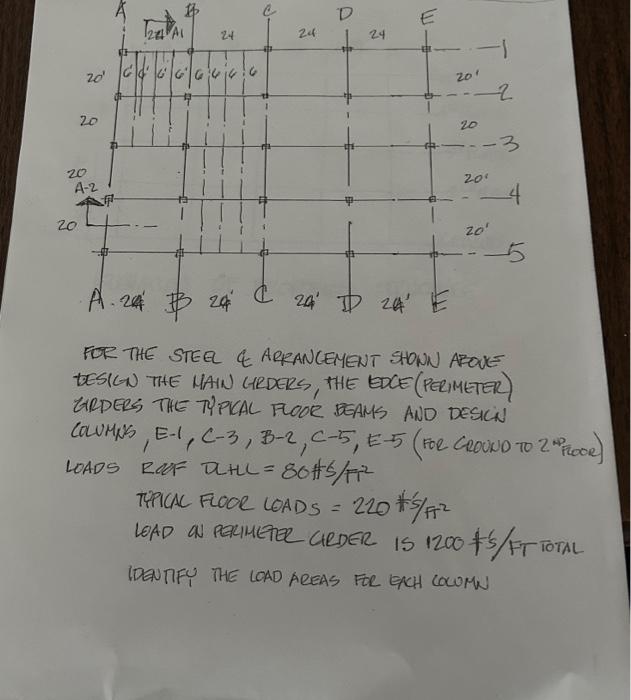 A B C D E
24' A1 24 24 24
1
20' 6' 6' 6' 6' 6 6 6 6 20'
2
20 20
3
20 20'
A-2 4
20 20'
5
A 24' B 24' C 24' D 24' E
FOR THE STEEL & ARRANGEMENT SHOWN ABOVE
DESIGN THE MAIN GIRDERS, THE EDGE (PERIMETER)
GIRDERS THE TYPICAL FLOOR BEAMS AND DESIGN
COLUMNS, E-1, C-3, B-2, C-5, E-5 (FOR GROUND TO 2ND FLOOR)
LOADS ROOF DL+LL = 80 #'S/FT²
TYPICAL FLOOR LOADS = 220 #'S/FT²
LOAD ON PERIMETER GIRDER IS 1200 #'S/FT TOTAL
IDENTIFY THE LOAD AREAS FOR EACH COLUMN